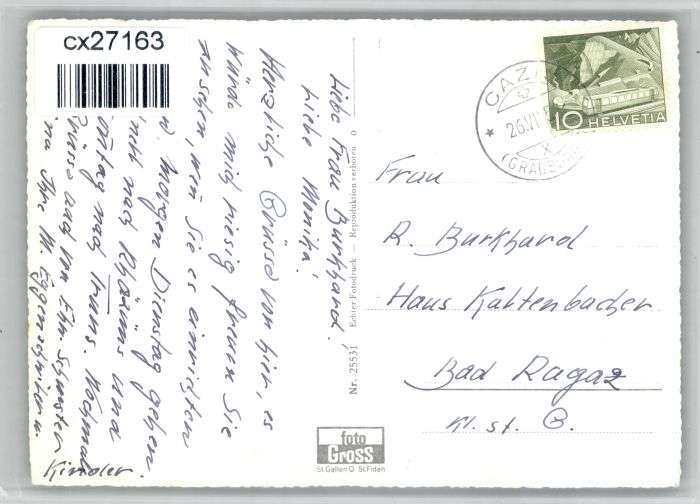 cx27163
Liebe Frau Burkhard!
Liebe Monika!
Herzliche Grüsse von hier, es
würde mich riesig freuen Sie
zu sehen, wen Sie es einrichten
Morgen Dienstag gehen
mit nach Rhäzüns und
nach Truns. Nochmals
Grüsse auch von Schwester
Ihr M.
Kinder.
Nr. 25531 Echter Fotodruck — Reproduktion verboten o
foto
Gross
St.Gallen O St.Fiden
CAZ
26.VI
(GRAUB
10 HELVETIA
Frau
R. Burkhard
Haus Kaltenbacher
Bad Ragaz
Kt. St. G.